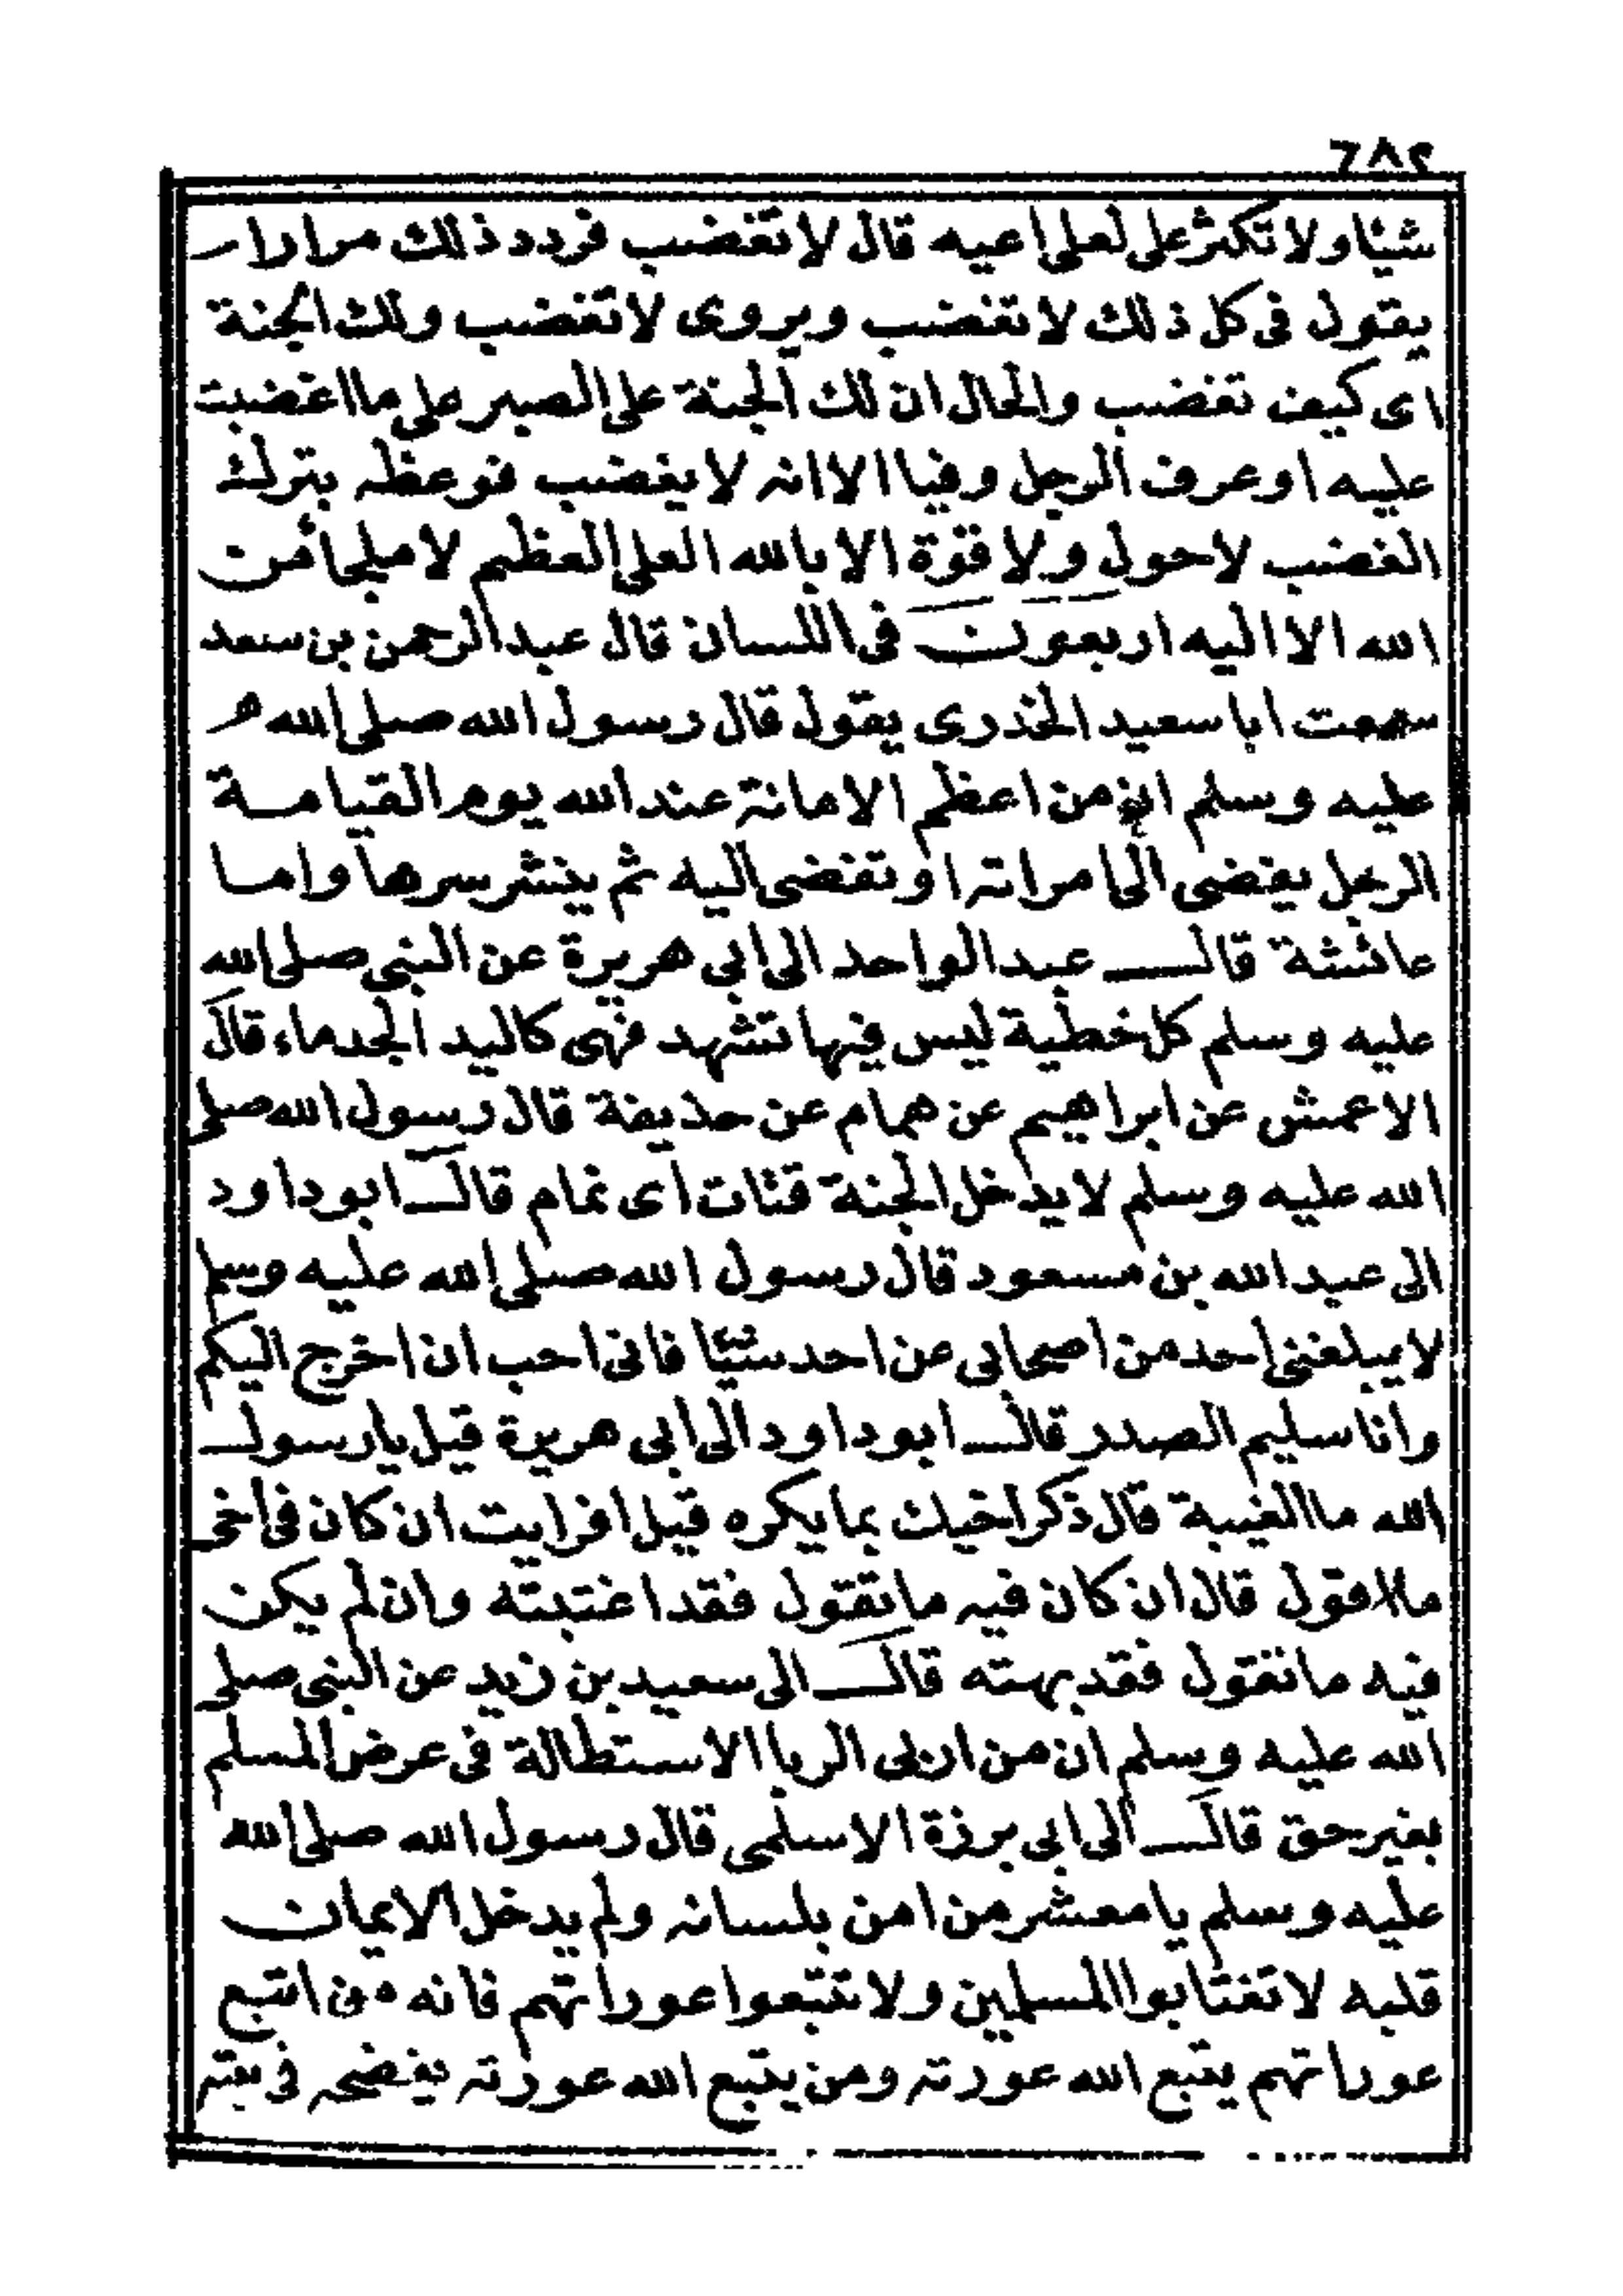 ٦٨٢
شيئا ولا تكثر على لعلى اعيه قال لا تغضب فردد ذلك مرارا
يقول فى كل ذلك لا تغضب ويروى لا تغضب ولك الجنة
اى كيف تغضب والحال ان لك الجنة على الصبر على ما اغضبت
عليه او عرف الرجل وفيا الا انه لا يغضب فوعظه بترك
الغضب لا حول ولا قوة الا بالله العلى العظيم لا ملجأ من
الله الا اليه اربعون فى اللسان قال عبد الرحمن بن سعد
سمعت ابا سعيد الخذرى يقول قال رسول الله صلى الله
عليه وسلم ان من اعظم الامانة عند الله يوم القيامة
الرجل يفضى الى امراته او تفضى اليه ثم ينشر سرها واما
عائشة قال عبد الواحد الى ابى هريرة عن النبى صلى الله
عليه وسلم كل خطبة ليس فيها تشهد فهى كاليد الجدماء قال
الاعمش عن ابراهيم عن همام عن حذيفة قال رسول الله صلى
الله عليه وسلم لا يدخل الجنة قتات اى نمام قال ابو داود
الى عبد الله بن مسعود قال رسول الله صلى الله عليه وسلم
لا يبلغنى احد من اصحابى عن احد شيئا فانى احب ان اخرج اليكم
وانا سليم الصدر قال ابو داود الى ابى هريرة قيل يا رسول
الله ما الغيبة قال ذكر اخيك بما يكره قيل افرايت ان كان فى اخى
ما اقول قال ان كان فيه ما تقول فقد اغتبته وان لم يكن
فيه ما تقول فقد بهته قال الى سعيد بن زيد عن النبى صلى
الله عليه وسلم ان من اربى الربا الاستطالة فى عرض المسلم
بغير حق قال الى ابى برزة الاسلمى قال رسول الله صلى الله
عليه وسلم يا معشر من امن بلسانه ولم يدخل الايمان
قلبه لا تغتابوا المسلمين ولا تتبعوا عوراتهم فانه من اتبع
عوراتهم يتبع الله عورته ومن يتبع الله عورته يفضحه فى بيته